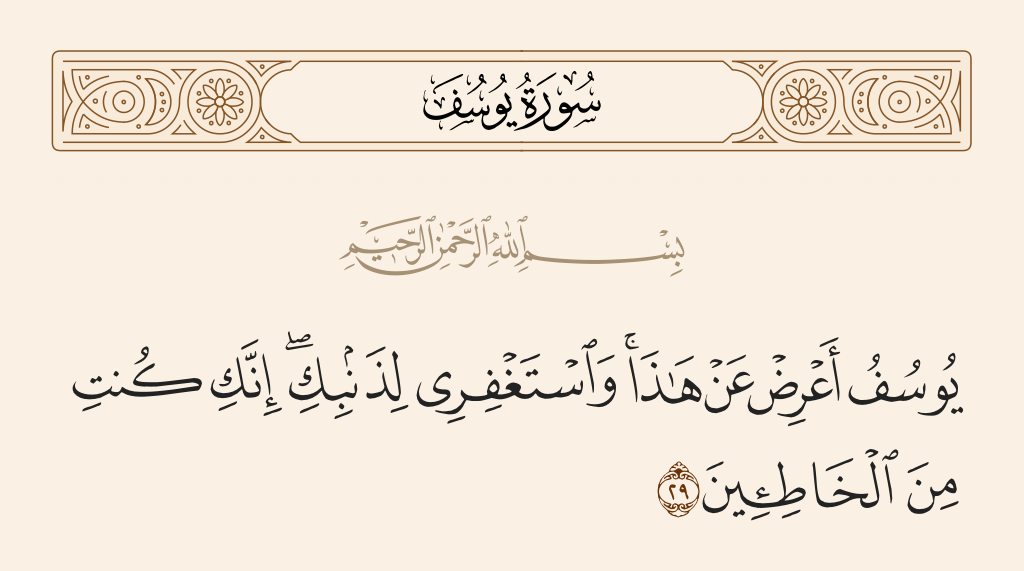 سُورَةُ يُوسُفَ
بِسْمِ ٱللَّهِ ٱلرَّحْمَٰنِ ٱلرَّحِيمِ
يُوسُفُ أَعْرِضْ عَنْ هَـٰذَا ۚ وَٱسْتَغْفِرِى لِذَنۢبِكِ ۖ إِنَّكِ كُنتِ
مِنَ ٱلْخَاطِـِٔينَ ٢٩